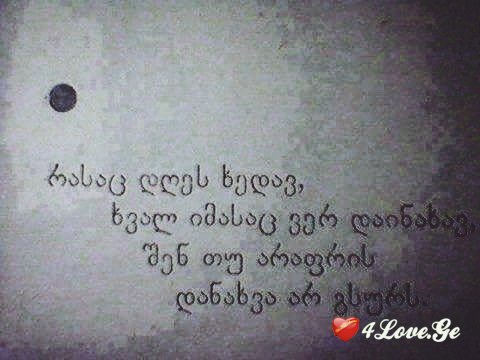 რასაც დღეს ხედავ,
ხვალ იმასაც ვერ დაინახავ,
შენ თუ არაფრის
დანახვა არ გსურს.
4Love.Ge